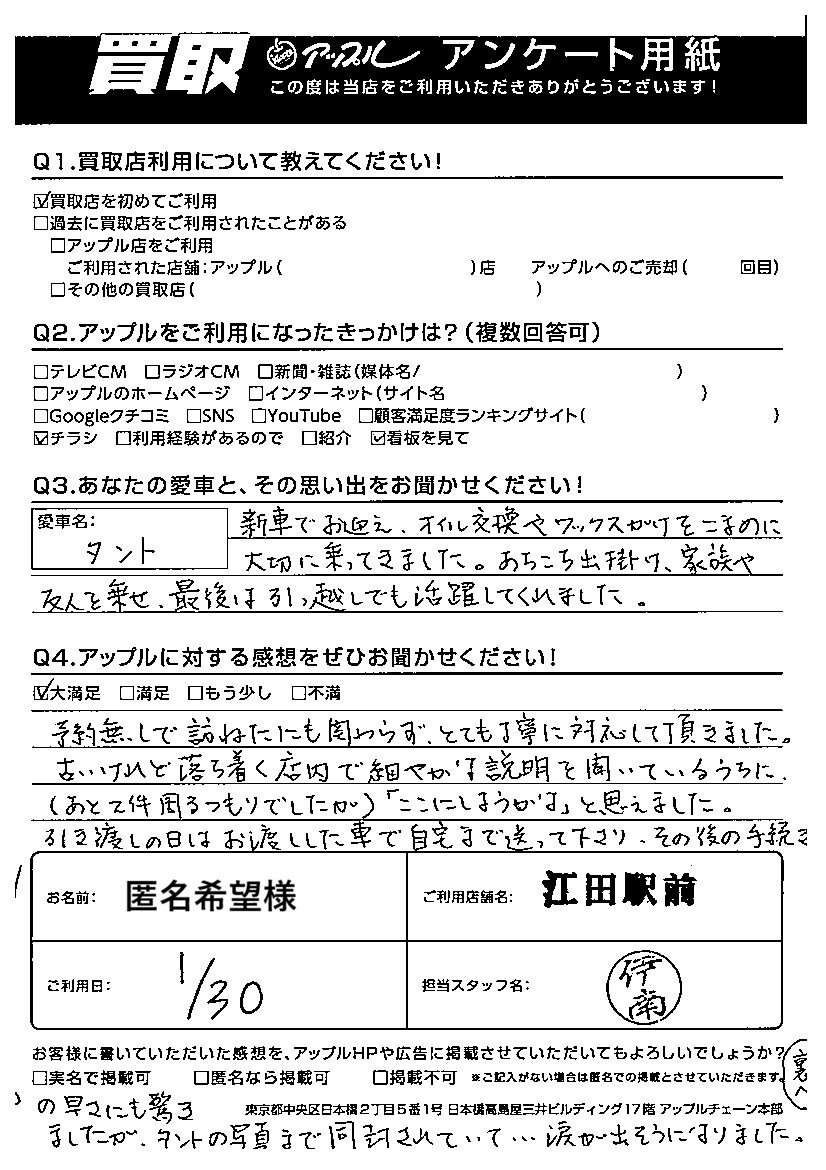 買取 アップル アンケート用紙
この度は当店をご利用いただきありがとうございます!
Q1.買取店利用について教えてください!
☑買取店を初めてご利用
□過去に買取店をご利用されたことがある
□アップル店をご利用
ご利用された店舗:アップル( )店 アップルへのご売却( 回目)
□その他の買取店( )
Q2.アップルをご利用になったきっかけは?(複数回答可)
□テレビCM □ラジオCM □新聞・雑誌(媒体名/ )
□アップルのホームページ □インターネット(サイト名 )
□Googleクチコミ □SNS □YouTube □顧客満足度ランキングサイト( )
☑チラシ □利用経験があるので □紹介 ☑看板を見て
Q3.あなたの愛車と、その思い出をお聞かせください!
愛車名:
タント
新車でお迎え、オイル交換やワックスがけをこまめに
大切に乗ってきました。あちこち出掛け、家族や
友人を乗せ、最後は引っ越しでも活躍してくれました。
Q4.アップルに対する感想をぜひお聞かせください!
☑大満足 □満足 □もう少し □不満
予約無しで訪ねたにも関わらず、とても丁寧に対応して頂きました。
古いけれど落ち着く店内で細やかな説明を聞いているうちに、
(あと2件周るつもりでしたが)「ここにしようかな」と思えました。
引き渡しの日はお渡しした車で自宅まで送って下さり、その後の手続き
お名前: 匿名希望様
ご利用店舗名: 江田駅前
ご利用日: 1/30
担当スタッフ名: 伊南
お客様に書いていただいた感想を、アップルHPや広告に掲載させていただいてもよろしいでしょうか?
□実名で掲載可 □匿名なら掲載可 □掲載不可 ※ご記入がない場合は匿名での掲載とさせていただきます。
裏へ
の早さにも驚き
東京都中央区日本橋2丁目5番1号 日本橋高島屋三井ビルディング17階 アップルチェーン本部
ましたが、タントの写真まで同封されていて…涙が出そうになりました。